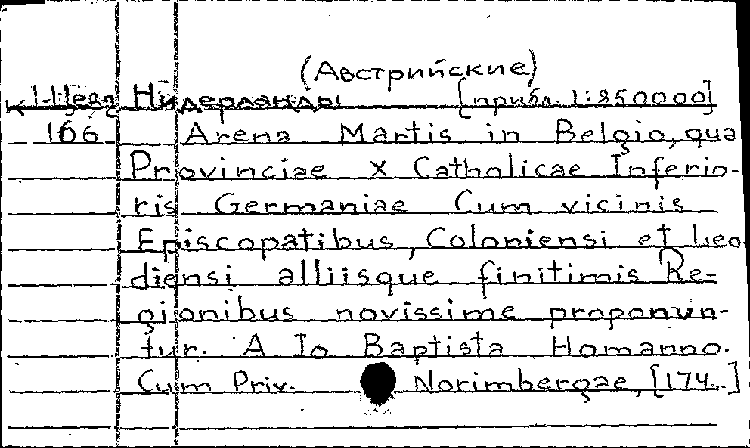 (Австрийские)
К 1-Нед Нидерланды [прибл. 1:850000]
166 Arena Martis in Belgio, qua
Provinciae X Catholicae Inferio-
ris Germaniae Cum vicinis
Episcopatibus, Coloniensi et Leo
diensi alliisque finitimis Re-
gionibus novissime proponun-
tur. A Io Baptista Homanno.
Cum Priv. Norimbergae, [174..]